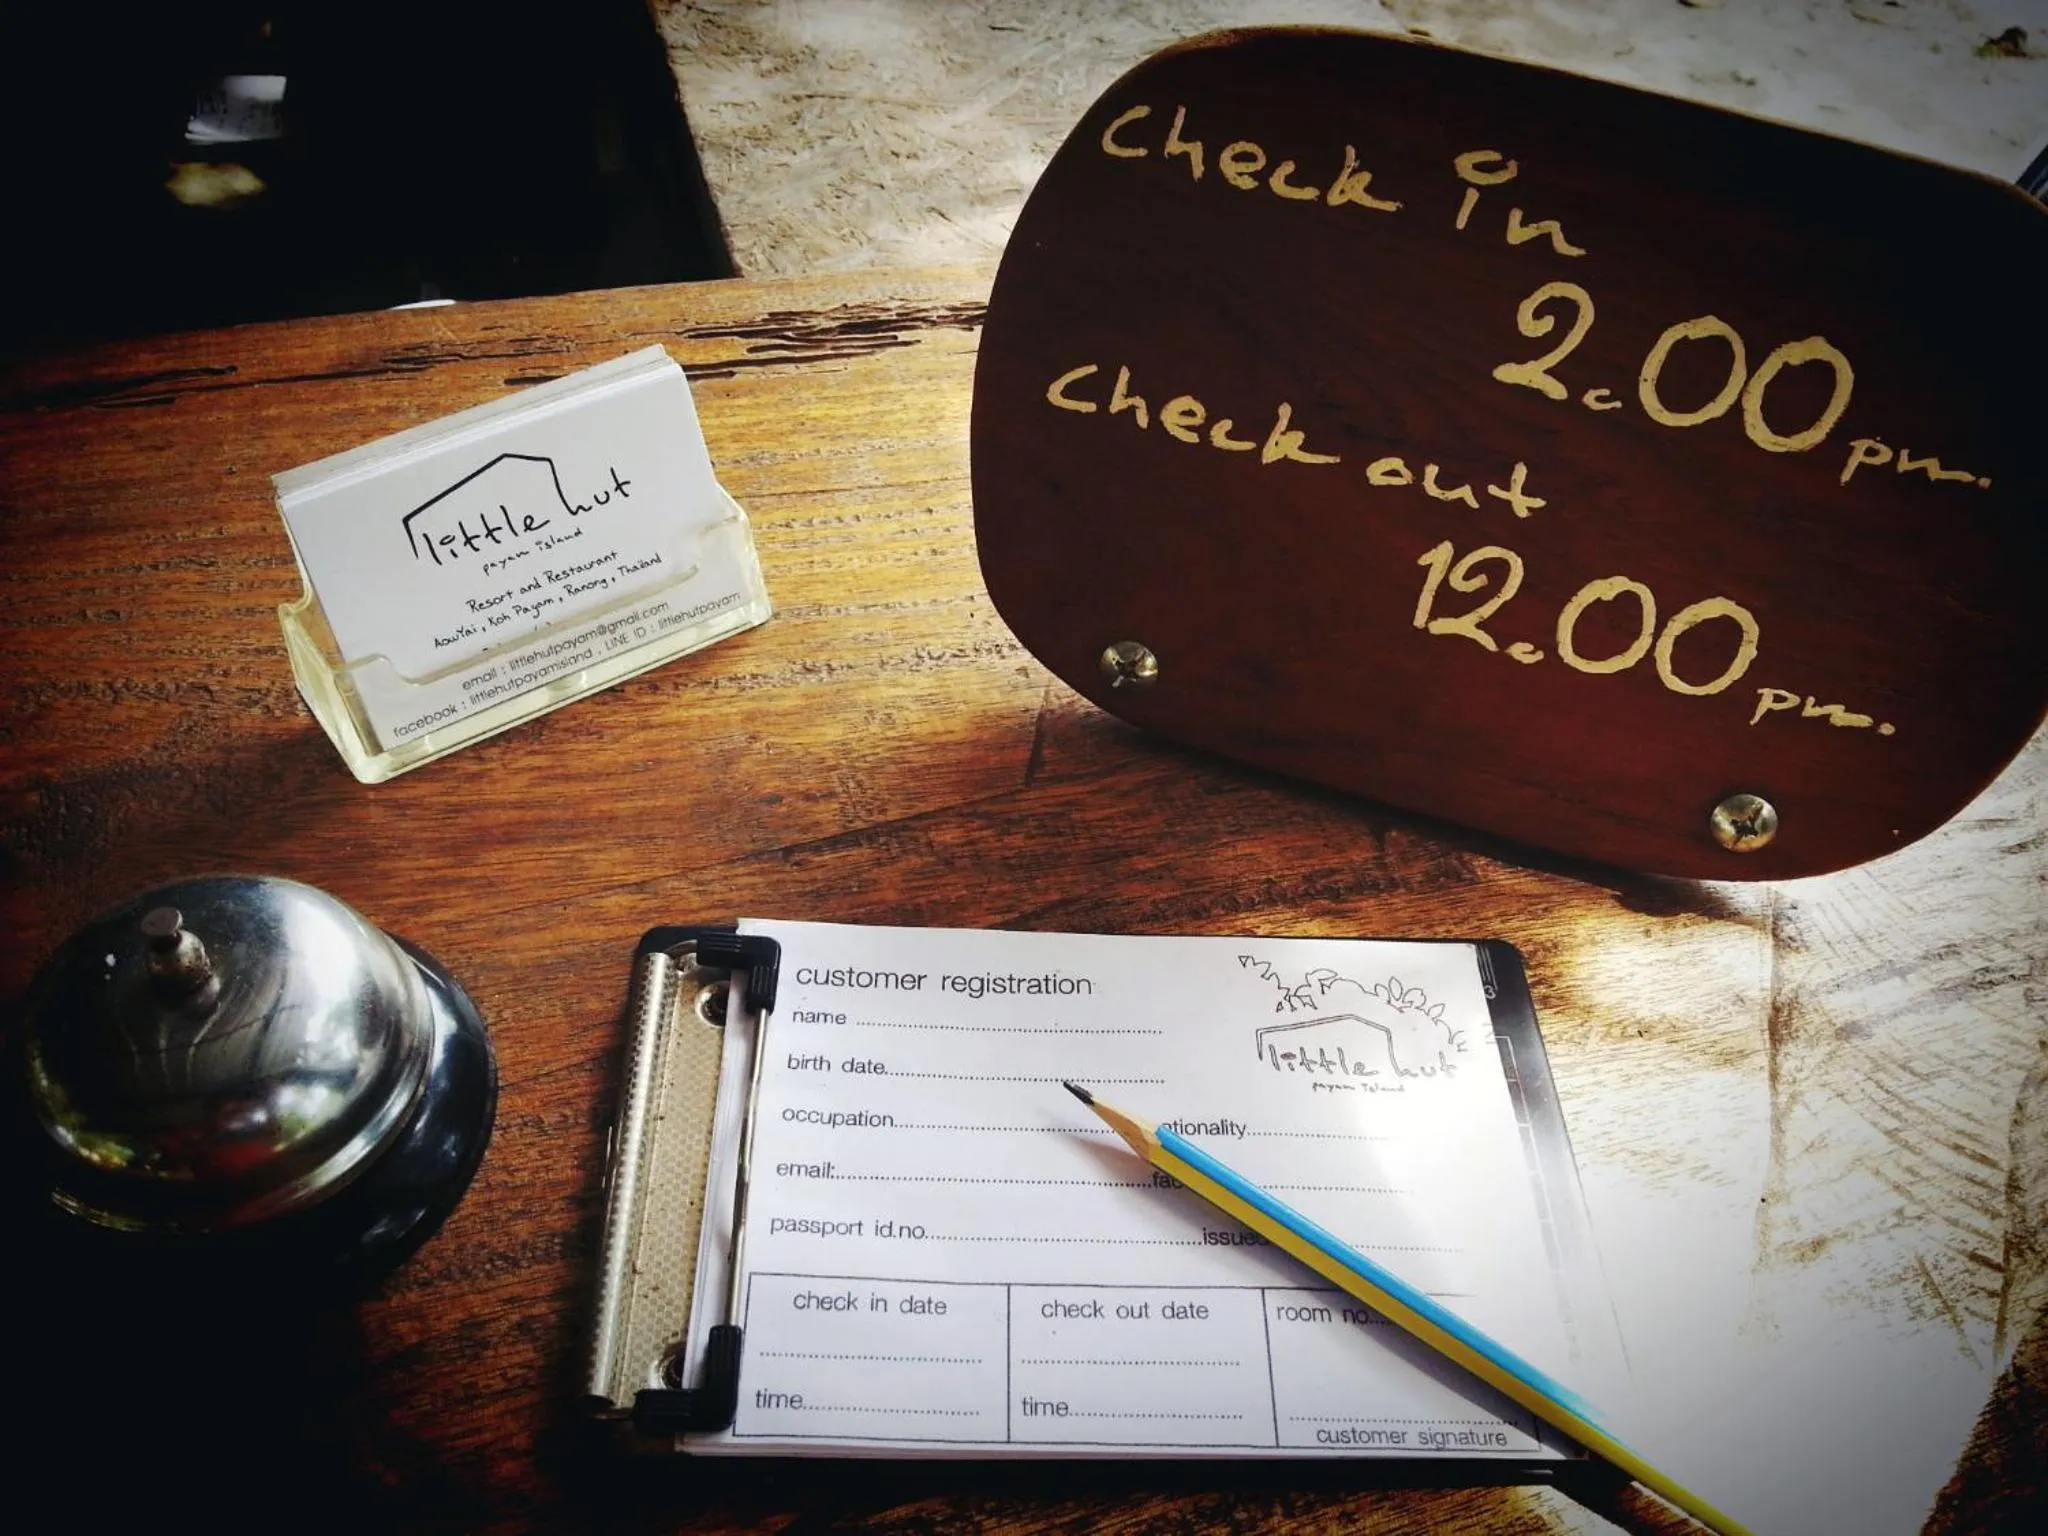 Check in
2.00 pm.
Check out
12.00 pm.
little hut
payam island
Resort and Restaurant
AowYai, Koh Payam, Ranong, Thailand
email : littlehutpayam@gmail.com
facebook : littlehutpayamisland , LINE ID : littlehutpayam
customer registration
little hut
payam island
name
birth date
occupation ationality
email:
passport id.no issued
check in date check out date room no
time time
customer signature